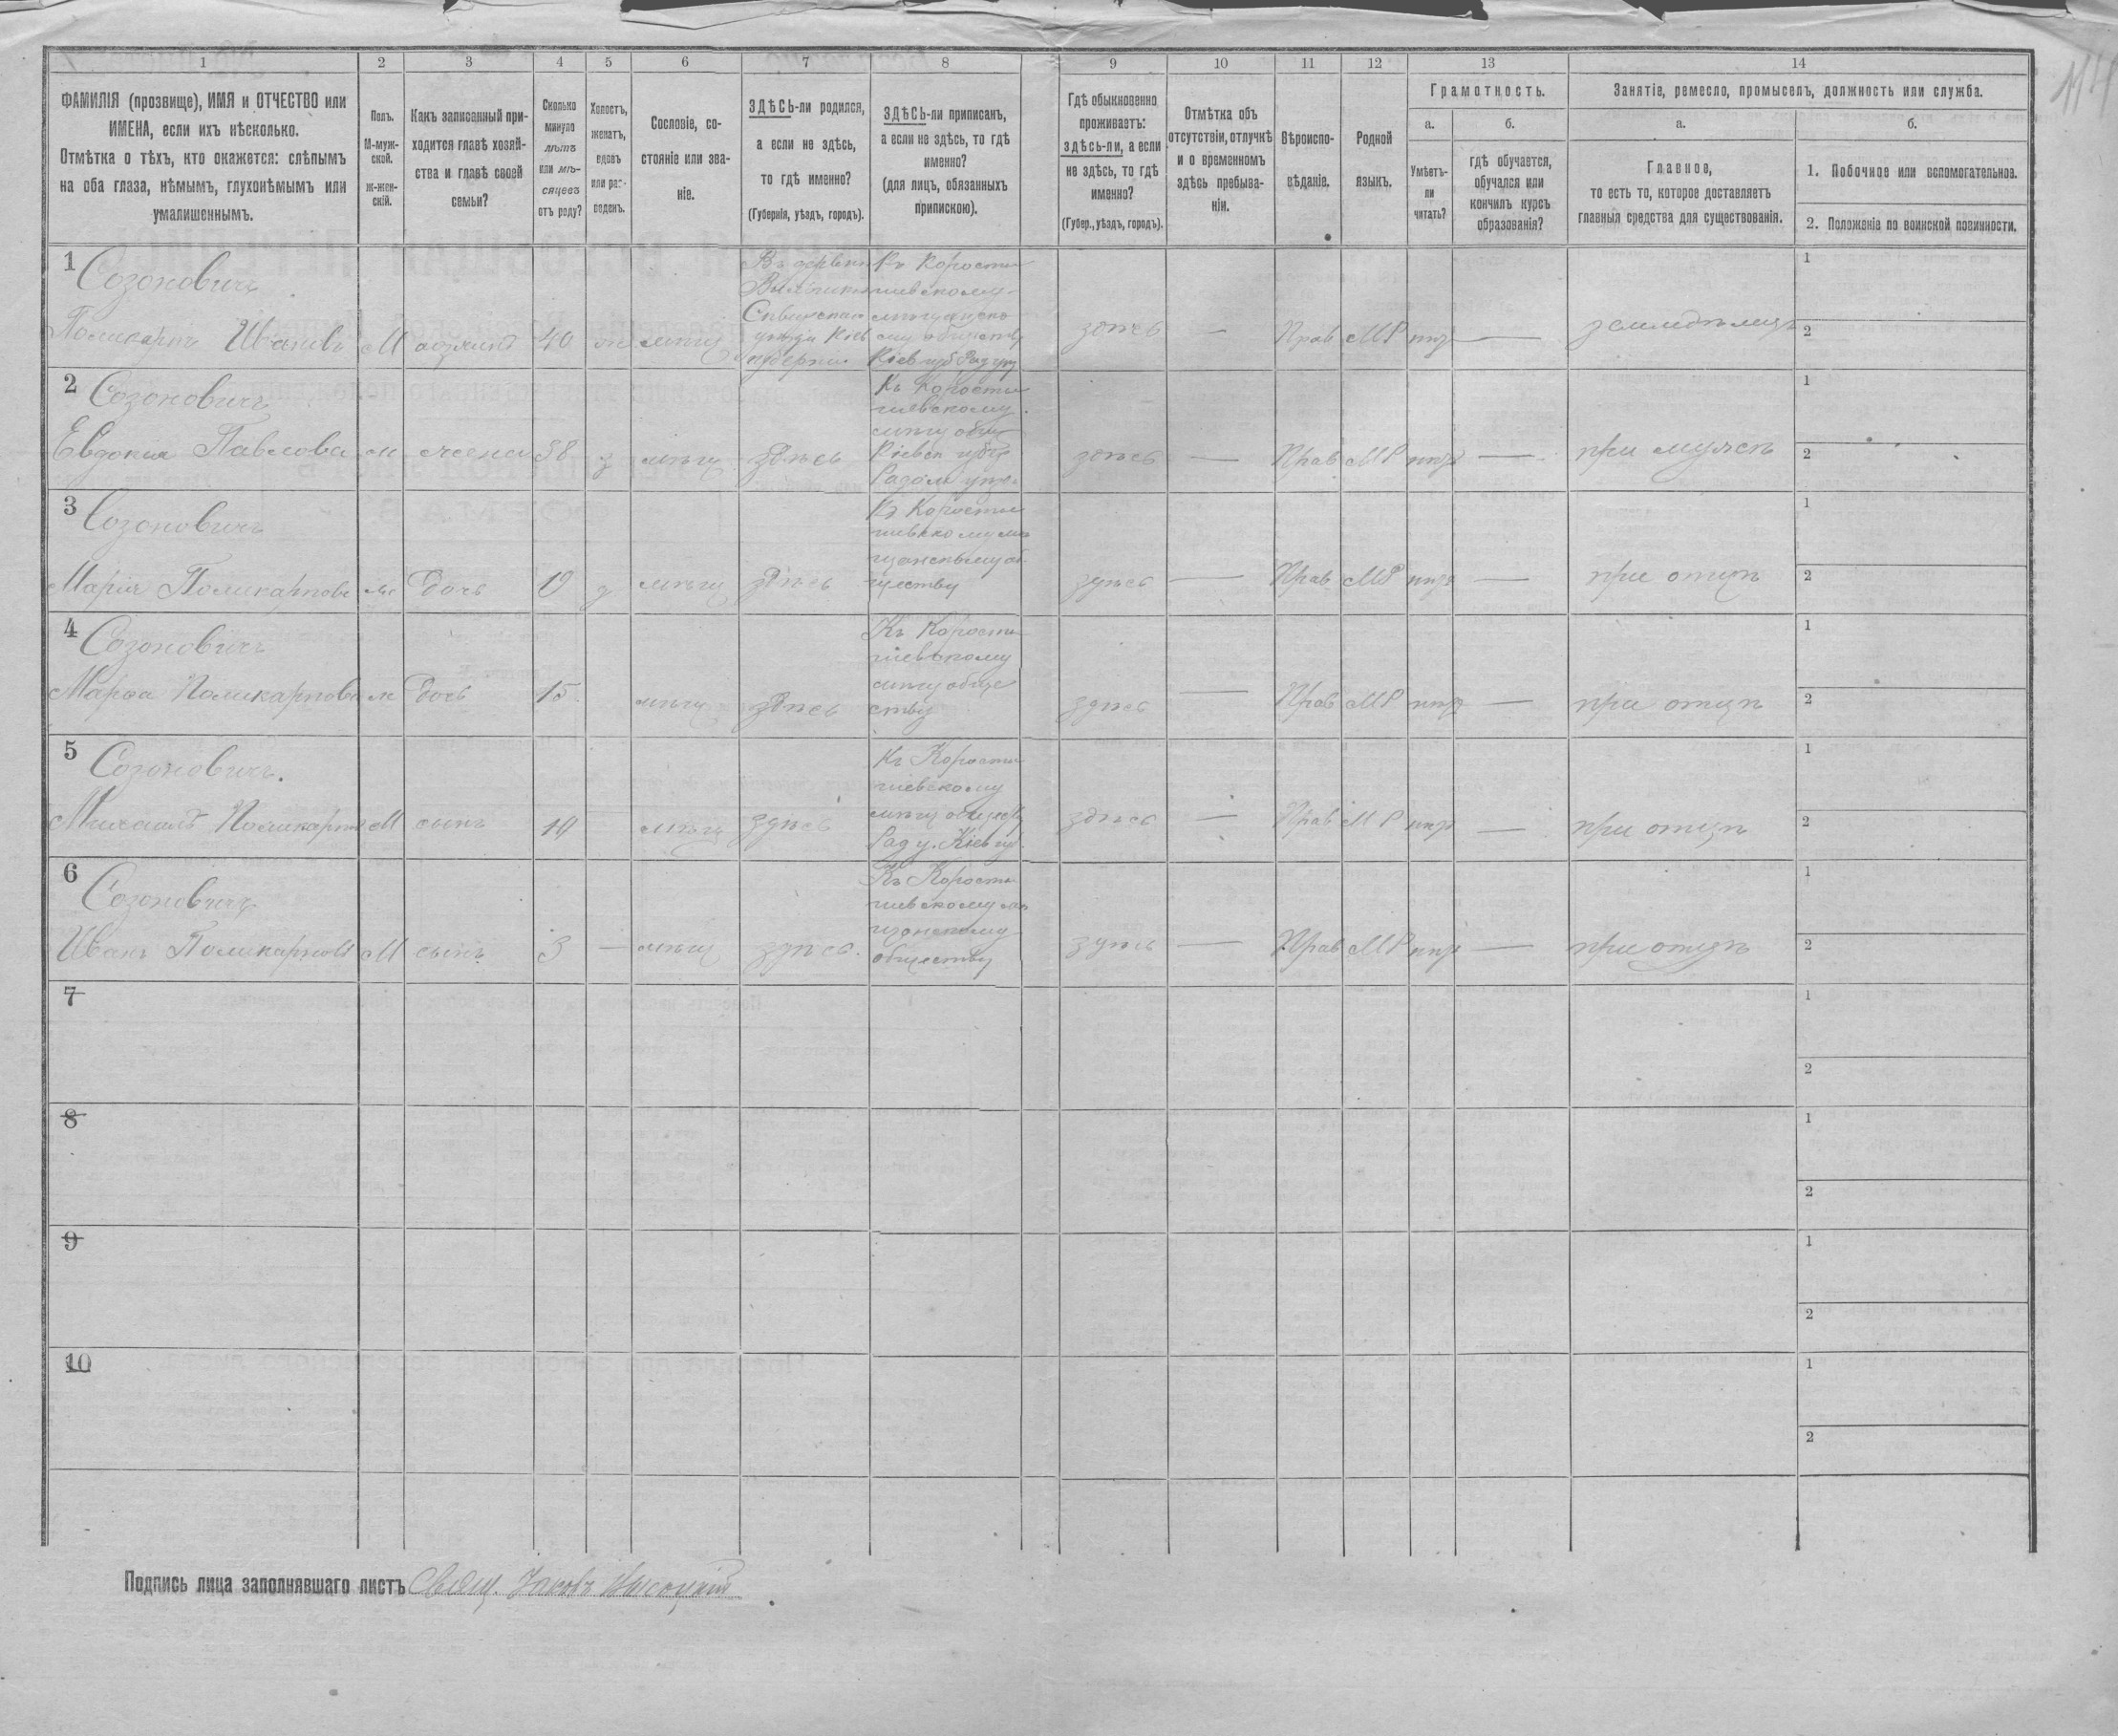 114
1 2 3 4 5 6 7 8 9 10 11 12 13 14
ФАМИЛІЯ (прозвище), ИМЯ и ОТЧЕСТВО или
ИМЕНА, если ихъ нѣсколько.
Отмѣтка о тѣхъ, кто окажется: слѣпымъ
на оба глаза, нѣмымъ, глухонѣмымъ или
умалишеннымъ.
Полъ.
М-муж-
ской.
ж-жен-
скій.
Какъ записанный при-
ходится главѣ хозяй-
ства и главѣ своей
семьи?
Сколько
минуло
лѣтъ
или мѣ-
сяцевъ
отъ роду?
Холостъ,
женатъ,
вдовъ
или раз-
веденъ.
Сословіе, со-
стояніе или зва-
ніе.
ЗДѢСЬ-ли родился,
а если не здѣсь,
то гдѣ именно?
(Губернія, уѣздъ, городъ).
ЗДѢСЬ-ли приписанъ,
а если не здѣсь, то гдѣ
именно?
(для лицъ, обязанныхъ
припискою).
Гдѣ обыкновенно
проживаетъ:
здѣсь-ли, а если
не здѣсь, то гдѣ
именно?
(Губер., уѣздъ, городъ).
Отмѣтка объ
отсутствіи, отлучкѣ
и о временномъ
здѣсь пребыва-
ніи.
Вѣроиспо-
вѣданіе.
Родной
языкъ.
Грамотность.
а.
Умѣетъ-
ли
читать?
б.
гдѣ обучается,
обучался или
кончилъ курсъ
образованія?
Занятіе, ремесло, промыселъ, должность или служба.
а.
Главное,
то есть то, которое доставляетъ
главныя средства для существованія.
б.
1. Побочное или вспомогательное.
2. Положеніе по воинской повинности.
1 Созоновичъ
Поликарпъ Ивановъ М 40 мѣщ
Къ Корости
шевскому
здѣсь — Прав МР — земледѣлецъ
1
2
2 Созоновичъ
Евдокія Павлова жена 38 з мѣщ здѣсь
Къ Корости
шевскому
мѣщ обще
здѣсь — Прав МР — при мужѣ
1
2
3 Созоновичъ
Марія Поликарпова дочь 19 д мѣщ здѣсь
Къ Корости
шевскому мѣ
щанскому об
ществу
здѣсь — Прав МР — при отцѣ
1
2
4 Созоновичъ
Марѳа Поликарпова дочь 15 мѣщ здѣсь
Къ Корости
шевскому
мѣщ обще
ству
здѣсь — Прав МР — при отцѣ
1
2
5 Созоновичъ.
Михаилъ М сынъ 10 — мѣщ здѣсь
Къ Корости
шевскому
мѣщ обществ
Рад у. Кіев губ.
здѣсь — Прав МР — при отцѣ
1
2
6 Созоновичъ
Иванъ Поликарповъ М сынъ 3 — мѣщ здѣсь.
Къ Корости
шевскому мѣ
щанскому
обществу
здѣсь — Прав МР — при отцѣ
1
2
7
1
2
8
1
2
9
1
2
10
1
2
Подпись лица заполнявшаго листъ Свящ. Іаковъ Высоцкій